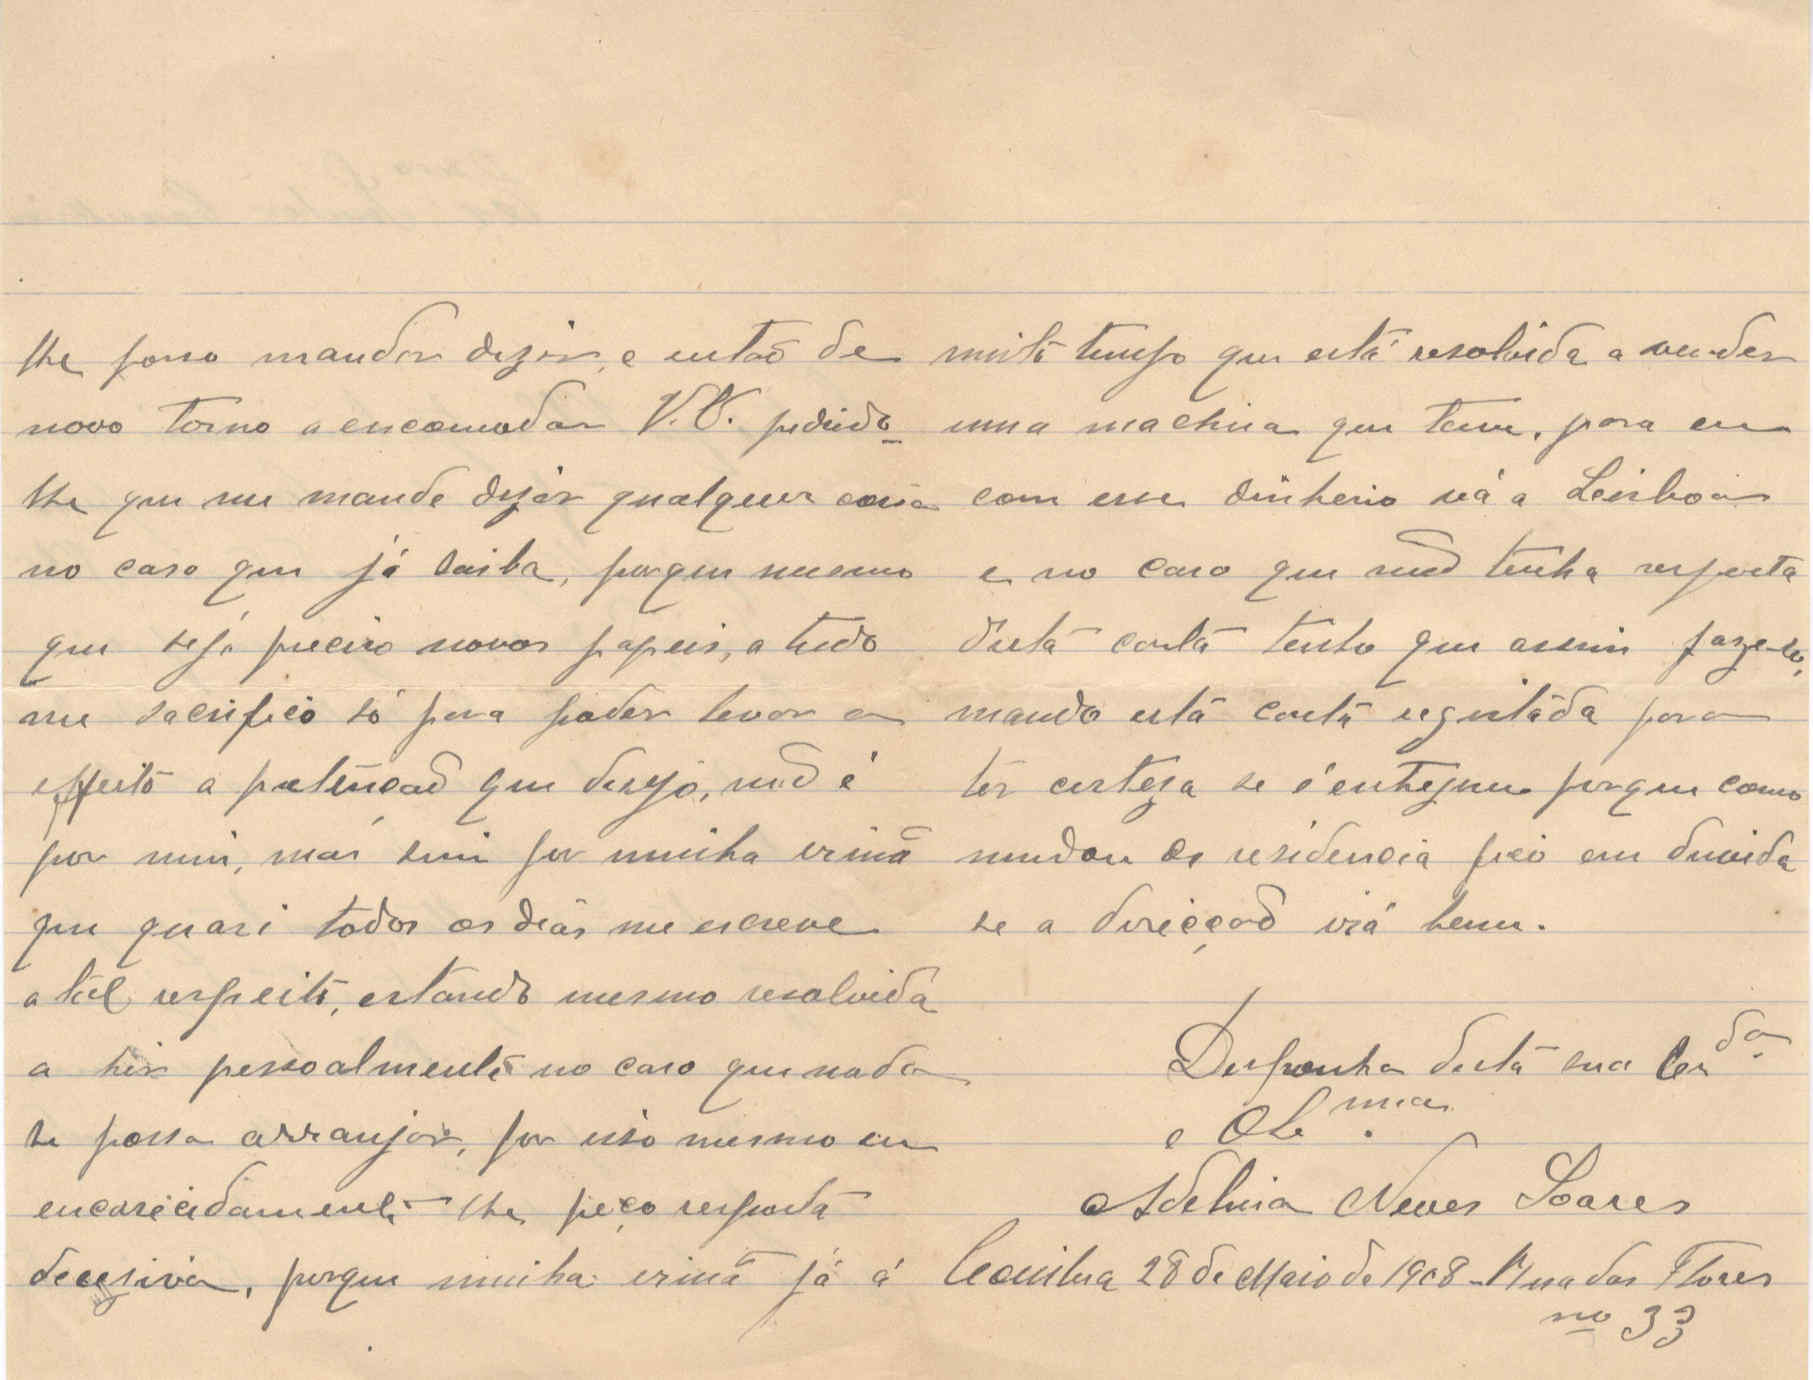 lhe posso mandar dizer, e então de
novo torno a encomodar V. Ex. pedindo-
lhe que me mande dizer qualquer coisa
no caso que já saiba, porque mesmo
que sejá preciso novos papeis, a tudo
me sacrifico só para poder levar a
effeito a pretenção que desejo, não é
por mim, mas sim por minha irmã
que quasi todos os dias me escreve
a tal respeito, estando mesmo resolvida
a hir pessoalmente no caso que nada
se possa arranjar, por isso mesmo eu
encarecidamente lhe peço resposta
decesiva, porque minha irmã já á
muito tempo que está resolvida a vender
uma machina que tem, para eu
com esse dinheiro irá a Leisboa
e no caso que não tenha resposta
desta carta tenho que assim faze-lo,
mando esta carta registada para
ter certeza se é entregue porque como
mudou de residencia fico em duvida
se a direcção irá bem.
Desponha desta sua Cr.da
e Ob.ma
Adelina Neves Soares
Coimbra 28 de Maio de 1908 - Rua das Flores
nº 33